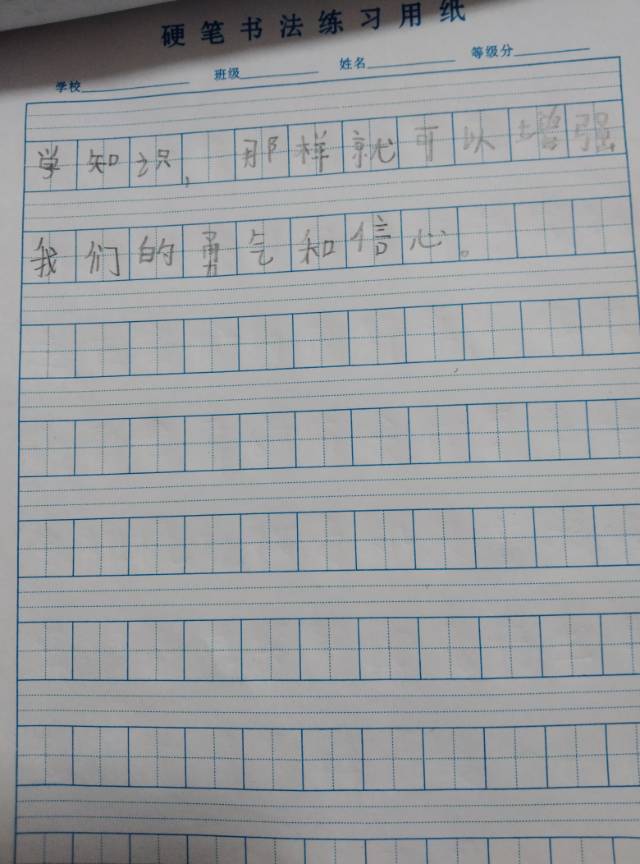 硬笔书法练习用纸
学校 班级 姓名 等级分
学知识，那样就可以增强
我们的勇气和信心。